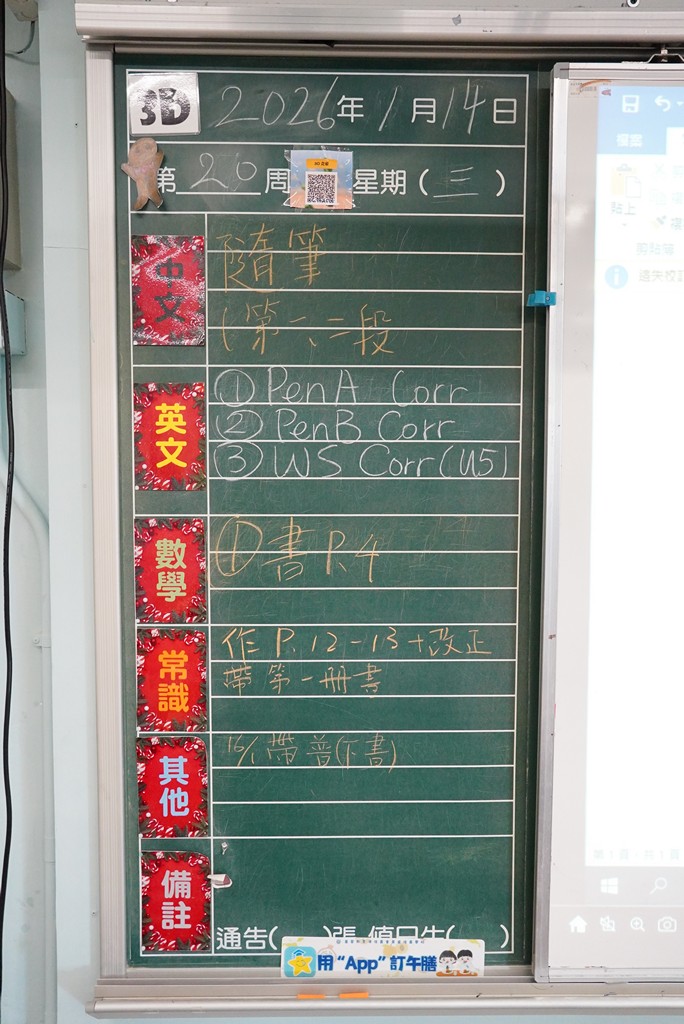 3D 2026年1月14日
第20周 星期(三)
中文
隨筆
(第一、二段
英文
① PenA Corr
② PenB Corr
③ WS Corr(U5)
數學
① 書 P.4
常識
作 P.12-13+改正
帶第一冊書
其他
16/1 帶普(下書)
備註
通告( )張 值日生( )
用“App”訂午膳
檔案
貼上
剪貼簿